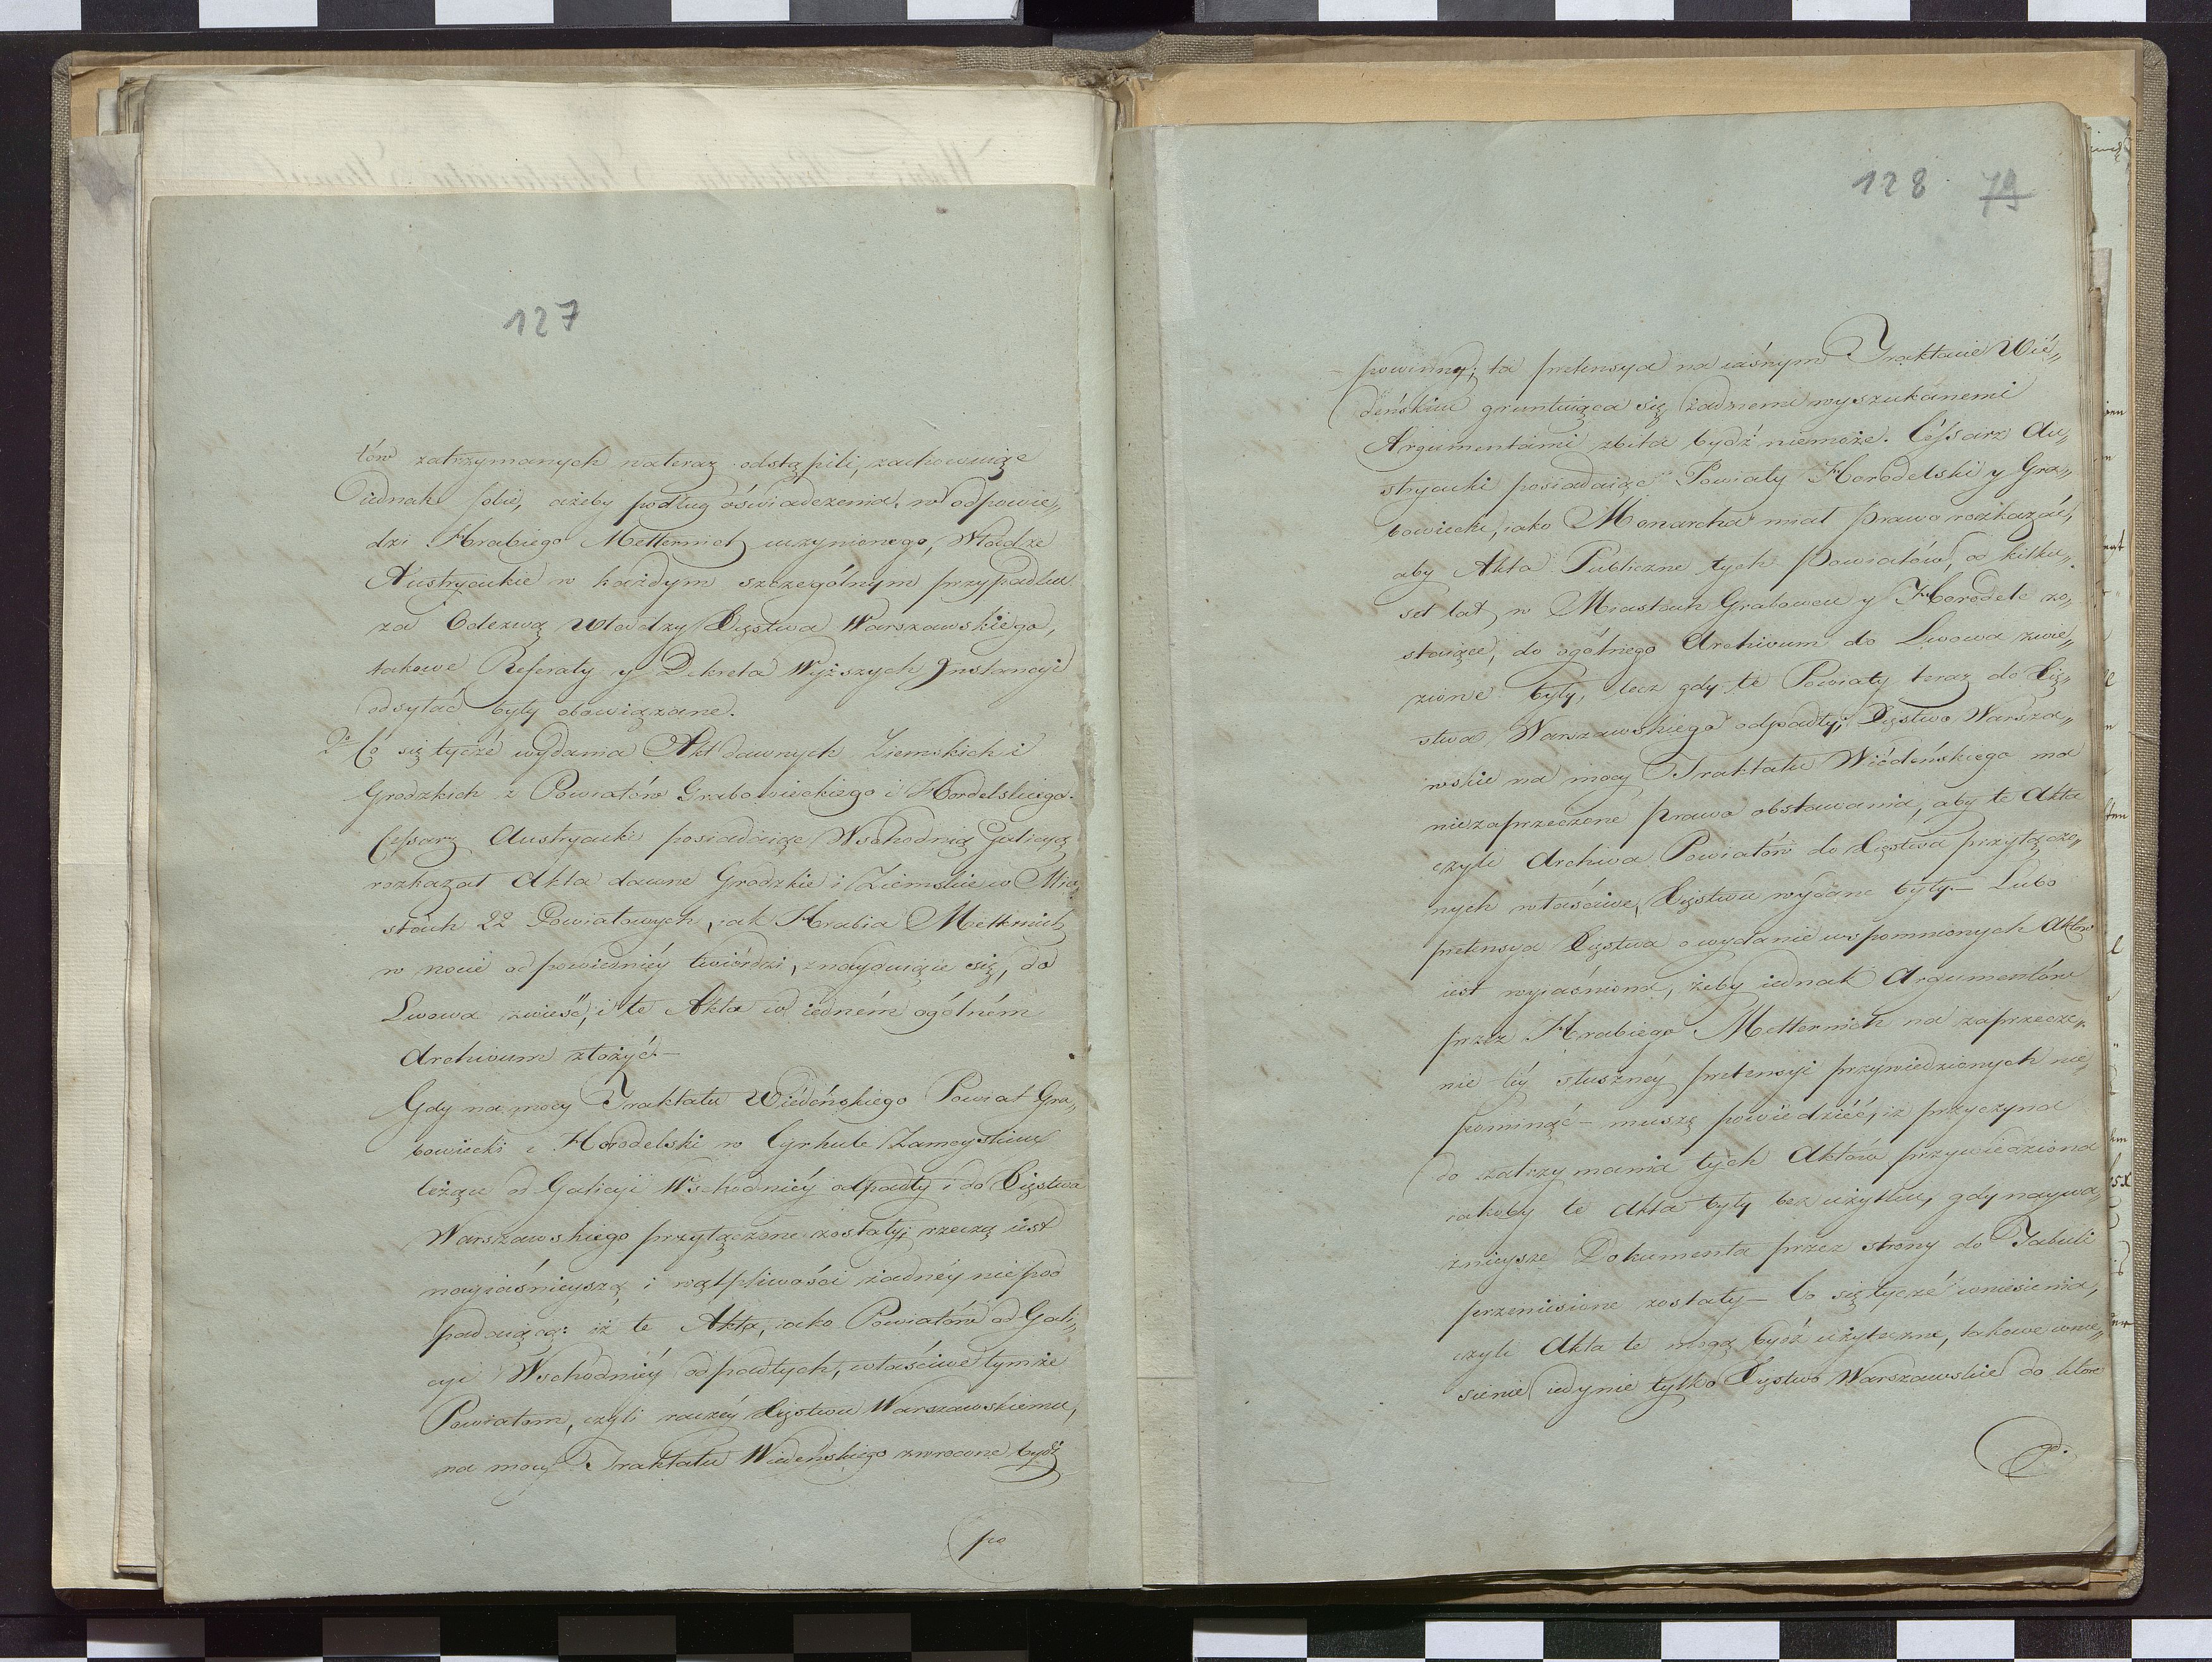 127
tów zatrzymanych nateraz odstąpili, zachowuiąc
iednak sobie, ażeby podług oświadczenia, w odpowie„
dzi Hrabiego Metternich uczynionego, Władze
Austryackie w każdym szczególnym przypadku
za Odezwą Władzy Xięstwa Warszawskiego,
takowe Referaty y Dekreta Wyższych Instancyi
odsyłać były obowiązane.
2o Co się tycze wydania Akt dawnych Ziemskich i
Grodzkich z Powiatów Grabowieckiego i Hordelskiego.
Cessarz Austryacki posiadaiąc Wschodnią Galicyą
rozkazał Akta dawne Grodzkie i Ziemskie w Mia„
stach 22 Powiatowych, iak Hrabia Metternich
w nocie odpowiedniéy twiérdzi, znayduiące się, do
Lwowa zwieść, i te Akta w iedném ogólném
Archivum złożyć.—
Gdy na mocy Traktatu Wiédéńskiego Powiat Gra„
bowiecki i Horodelski w Cyrkule Zamoyskim
leżące od Galicyi Wschodniéy odpadły i do Xięstwa
Warszawskiego przyłączone zostały; rzeczą iest
nayiaśnieyszą i wątpliwości żadnéy nie pod
padaiącą: iż te Akta, iako Powiatów od Gali„
cyi Wschodniéy odpadłych, właściwe tymże
Powiatom, czyli raczéy Xięstwu Warszawskiemu,
na mocy Traktatu Wiedeńskiego zwrocone bydź
po
128 79
powinny; ta pretensya na iaśnym Traktacie Wié„
deńskim gruntuiąca się żadnemi wyszukanemi
Argumentami zbita bydź niemoże. Céssarz Au„
stryacki posiadaiąc Powiaty Horodelski y Gra„
bowiecki, iako Monarcha miał prawo rozkazać,
aby Akta Publiczne tych Powiatów, od kilku„
set lat w Miastach Grabowcu y Horodele zo„
staiące, do ogólnego Archivum do Lwowa zwie„
zione były, lecz gdy te Powiaty teraz do Xię„
stwa Warszawskiego odpadły; Xięstwo Warsza„
wskie na mocy Traktatu Wiédeńskiego ma
niezaprzeczone prawo obstawania, aby te Akta
czyli Archiva Powiatów do Xięstwa przyłączo„
nych właściwe, Xięstwu wydane były.— Lubo
pretensya Xięstwa o wydanie wspomnionych Aktów
iest wyiaśniona, żeby iednak Argumentów
przez Hrabiego Metternich na zaprzecze„
nie téy słuszney pretensyi przywiedzionych nie
pominąć – muszę powiedziéć, iż przyczyna
do zatrzymania tych Aktów przywiedziona
iakoby te Akta były bez użytku, gdy naywa„
znieysze Dokumenta przez strony do Tabuli
przeniesione zostały – Co się tycze wniesienia,
czyli Akta te mogą bydź użyteczne, takowe wnie„
sienie iedynie tylko Xięstwo Warszawskie do któr